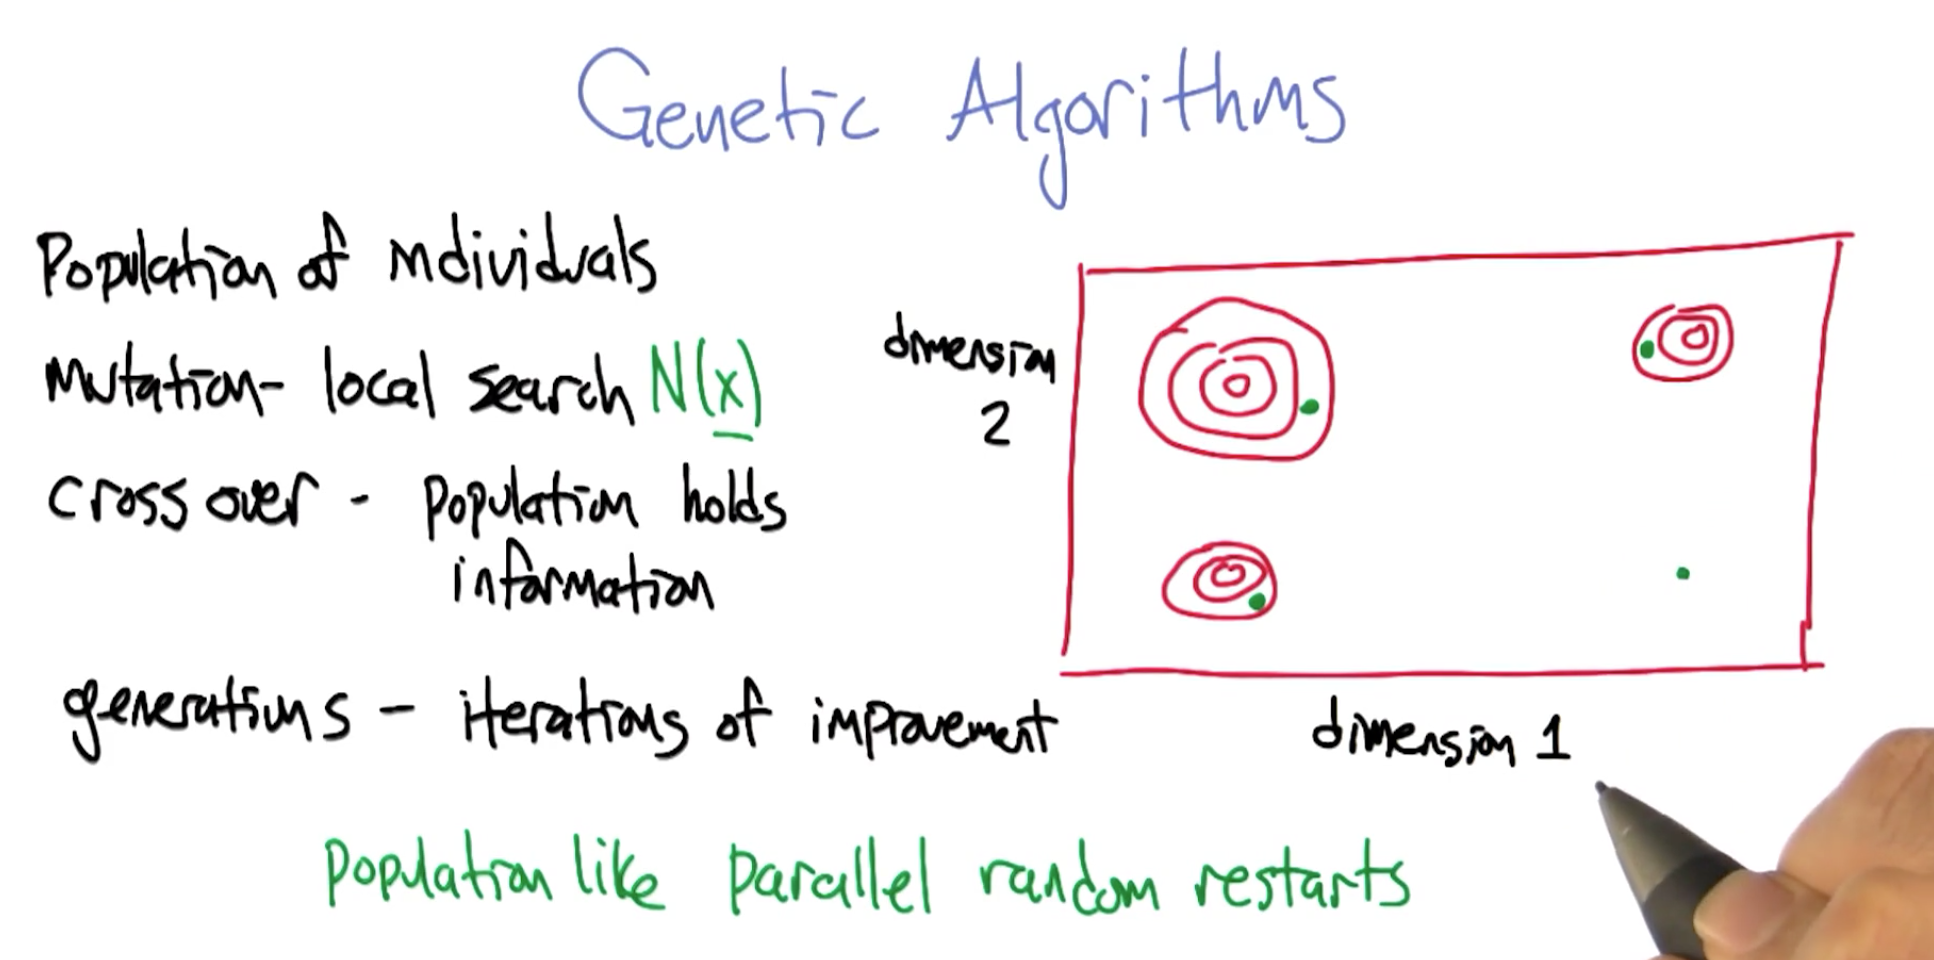 Genetic Algorithms
Population of individuals
mutation - local search N(x)
cross over - population holds
information
generations - iterations of improvement
dimension
2
dimension 1
population like parallel random restarts